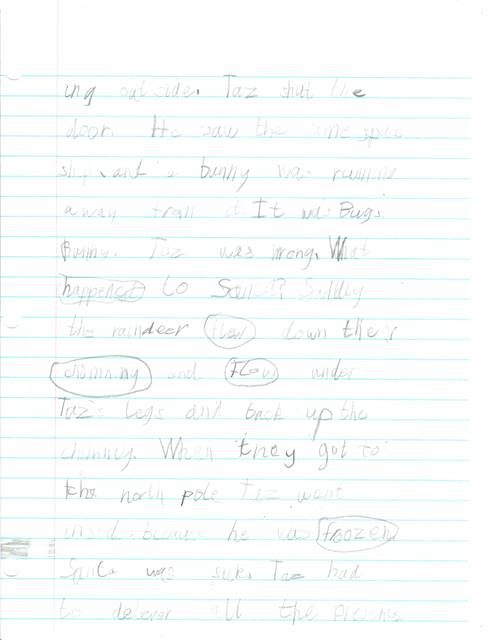 ing outside. Taz shut the
door. He saw the same space
ship, and a bunny was running
away from it. It was Bugs
Bunny. Taz was wrong. What
happened to Santa? Suddley
the raindeer flew down ther
chimning and flow under
Taz's legs and back up the
chimney. When they got to
the north pole Taz went
inside because he was froozen
Santa was sick. Taz had
to deliver all the presents